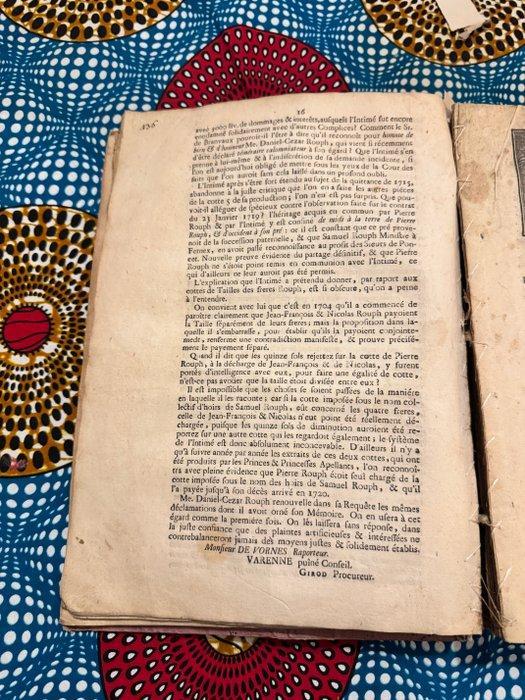 16
avec 3000 liv. de dommages & intérêts, ausquels l'Intimé fut encore
condamné solidairement avec d'autres Complices? Comment le Sr.
de Branvaux pouvoit-il l'être à dire qu'il reconnoît pour homme de
bien & d'honneur Me. Daniel-Cezar Rouph, qui vient
d'être déclaré téméraire calomniateur à son égard? Que l'Intimé s'en
prenne à lui-même & à l'indiscrétion de sa demande incidente, si
l'on est aujourd'hui obligé de mettre sous les yeux de la Cour des
faits que l'on auroit sans cela laissé dans un profond oubli.
L'Intimé après s'être fort étendu au sujet de la quittance de 1715,
abandonne à la juste critique que l'on en a faite les autres pièces
de la cotte 5 de sa production; l'on n'en est pas surpris. Que pou-
voit-il alléguer de spécieux contre l'observation faite sur le contrat
du 23 Janvier 1719? l'héritage acquis en commun par Pierre
Rouph & par l'Intimé y est confiné de midi à la terre de Pierre
Rouph; & d'occident à son pré: or il est constant que ce pré prove-
noit de la succession paternelle, & que Samuel Rouph Ministre à
Fernex, en avoit passé reconnoissance au profit des Sœurs de Pon-
cet. Nouvelle preuve évidente du partage définitif, & que Pierre
Rouph ne s'étoit point remis en communion avec l'Intimé, ce
qui d'ailleurs ne leur auroit pas été permis.
L'explication que l'Intimé a prétendu donner, par raport aux
cottes de Tailles des freres Rouph, est si obscure, qu'on a peine
à l'entendre.
On convient avec lui que c'est en 1704 qu'il a commencé de
paroître clairement que Jean-François & Nicolas Rouph payoient
la Taille séparément de leurs freres; mais la proposition dans la-
quelle il s'embarrasse, pour établir qu'ils la payoient conjointe-
ment, renferme une contradiction manifeste, & prouve précisé-
ment le payement séparé.
Quand il dit que les quinze sols rejettez sur la cotte de Pierre
Rouph, à la décharge de Jean-François & de Nicolas, y furent
portés d'intelligence avec eux, pour faire une égalité de cotte,
n'est-ce pas avouer que la taille étoit divisée entre eux?
Il est impossible que les choses se soient passées de la manière
en laquelle il les raconte; car si la cotte imposée sous le nom col-
lectif d'hoirs de Samuel Rouph, eût concerné les quatre freres,
celle de Jean-François & Nicolas n'eut point été réellement dé-
chargée, puisque les quinze sols de diminution auroient été re-
portez sur une autre cotte qui les regardoit également; le systême
de l'Intimé est donc absolument inconcevable. D'ailleurs il n'y a
qu'à suivre année par année les extraits de ces deux cottes, qui ont
été produits par les Princes & Princesses Apellants, l'on reconnoî-
tra avec pleine évidence que Pierre Rouph étoit seul chargé de la
cotte imposée sous le nom des hoirs de Samuel Rouph, & qu'il
l'a payée jusqu'à son décès arrivé en 1720.
Me. Daniel-Cezar Rouph renouvelle dans sa Requête les mêmes
déclamations dont il avoit orné son Mémoire. On en usera à cet
égard comme la premiere fois. On les laissera sans réponse, dans
la juste confiance que des plaintes artificieuses & intéressées ne
contrebalanceront jamais des moyens justes & solidement établis.
Monsieur DE VORNES Raporteur.
VARENNE puîné Conseil.
GIROD Procureur.